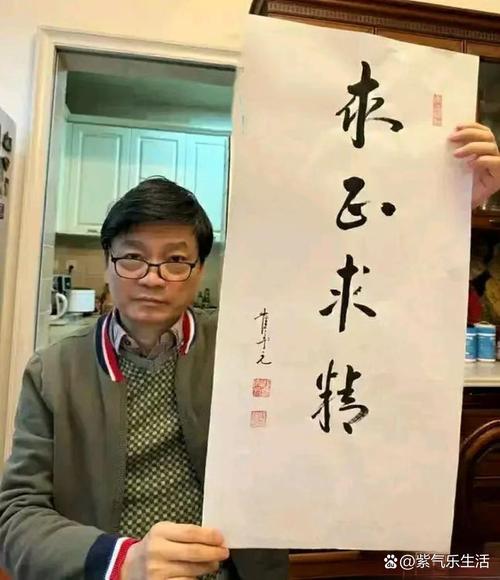 求正求精
崔永元
@紫气乐生活